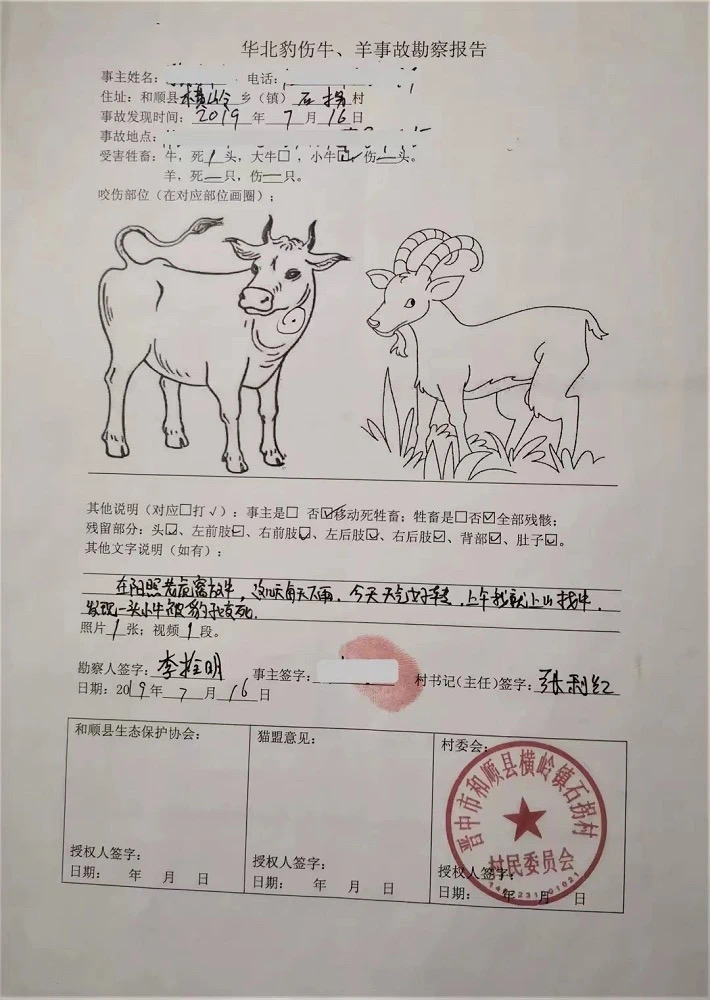 华北豹伤牛、羊事故勘察报告
事主姓名: 电话:
住址: 和顺县横岭乡（镇）石拐村
事故发现时间: 2019年7月16日
事故地点:
受害牲畜: 牛，死1头，大牛□，小牛☑，伤—头。
羊，死—只，伤—只。
咬伤部位（在对应部位画圈）;
其他说明（对应□打√）: 事主是□ 否☑移动死牲畜; 牲畜是□否☑全部残骸;
残留部分: 头☑、左前肢☑、右前肢☑、左后肢☑、右后肢☑、背部☑、肚子☑。
其他文字说明（如有）;
在阳照老虎窝放牛，这几天每天下雨，今天天气好转，上午我就上山找牛，
发现一头小牛被豹子咬死。
照片1张; 视频1段。
勘察人签字: 李拴明 事主签字: 村书记（主任）签字: 张利红
日期: 2019年7月16日
和顺县生态保护协会: 猫盟意见: 村委会:
晋中市和顺县横岭镇石拐村
村民委员会
授权人签字: 授权人签字: 授权人签字:
日期: 年 月 日 日期: 年 月 日 日期: 年 月 日